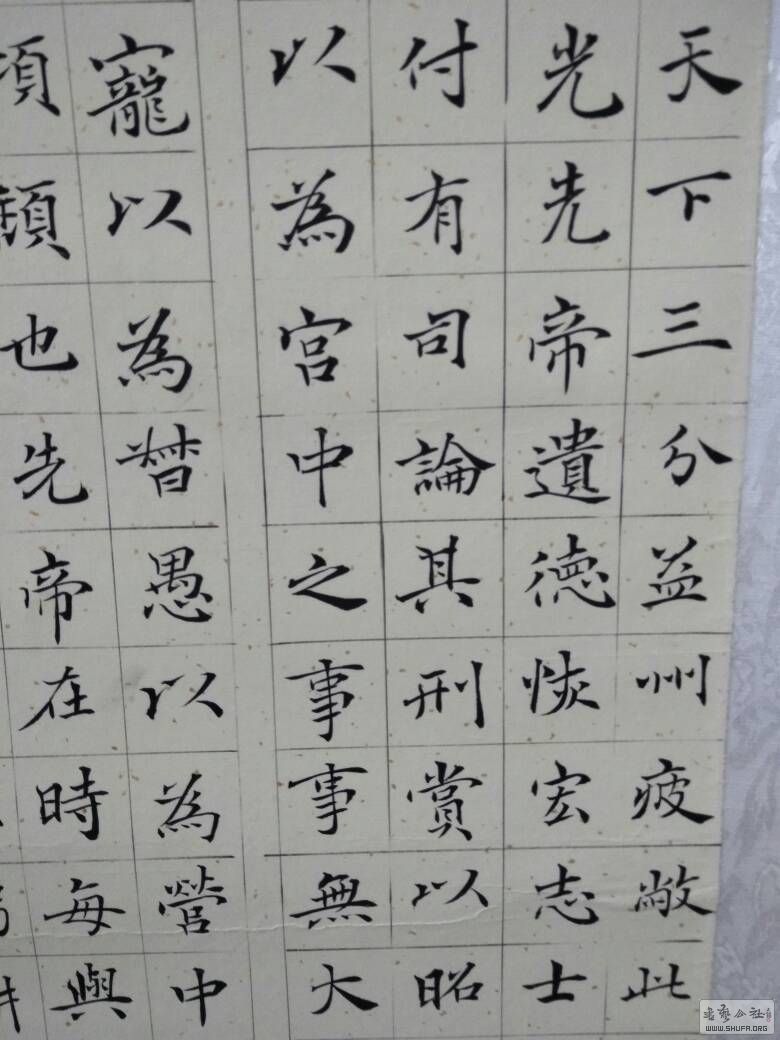 天下三分益州疲敝此
光先帝遺德恢宏志士
付有司論其刑賞以昭
以為宮中之事事無大
寵以為督愚以為營中
頃顏也先帝在時每與
书艺公社
WWW.SHUFA.ORG